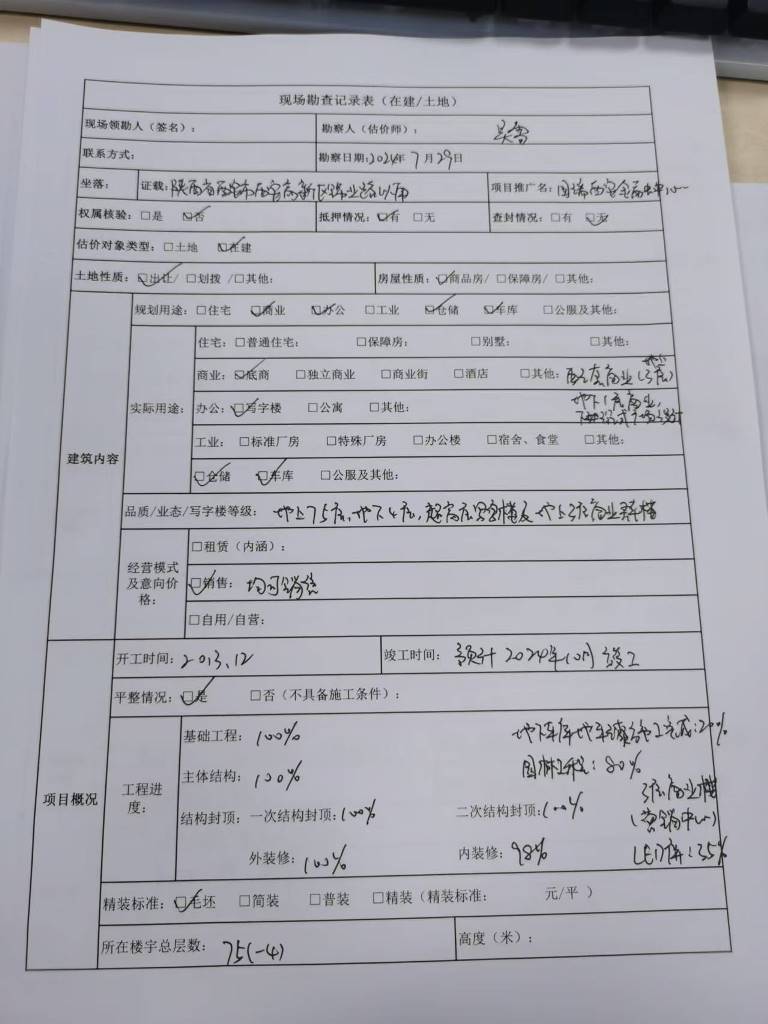 现场勘查记录表（在建/土地）
现场领勘人（签名）： 勘察人（估价师）：
联系方式： 勘察日期:2024年7月29日
坐落： 证载：陕西省西安市西安高新区锦业路以南 项目推广名：国瑞西安金融中心
权属核验：□是 ☑否 抵押情况：☑有 □无 查封情况：□有 ☑无
估价对象类型：□土地 ☑在建
土地性质：☑出让/□划拨 /□其他: 房屋性质：☑商品房/□保障房/□其他:
建筑内容
规划用途：□住宅 ☑商业 ☑办公 □工业 ☑仓储 ☑车库 □公服及其他:
实际用途：
住宅：□普通住宅: □保障房: □别墅: □其他:
商业：☑底商 □独立商业 □商业街 □酒店 □其他: 商业(3层)
办公：☑写字楼 □公寓 □其他: 地下1层商业,
工业：□标准厂房 □特殊厂房 □办公楼 □宿舍、食堂 □其他:
☑仓储 ☑车库 □公服及其他:
品质/业态/写字楼等级: 地上75层,地下4层,超高层写字楼及地上3层商业裙楼
经营模式及意向价格：
□租赁（内涵）：
☑销售: 均可销售
□自用/自营:
项目概况
开工时间: 2013.12 竣工时间: 预计2024年10月竣工
平整情况：☑是 □否（不具备施工条件）：
工程进度：
基础工程: 100% 地下车库地坪 完成:20%
主体结构: 100% 园林工程: 80%
结构封顶: 一次结构封顶:100% 二次结构封顶:100% 3层商业楼
(营销中心)
外装修: 100% 内装修: 98% LED屏:35%
精装标准：☑毛坯 □简装 □普装 □精装（精装标准: 元/平 ）
所在楼宇总层数: 75(-4) 高度（米）;